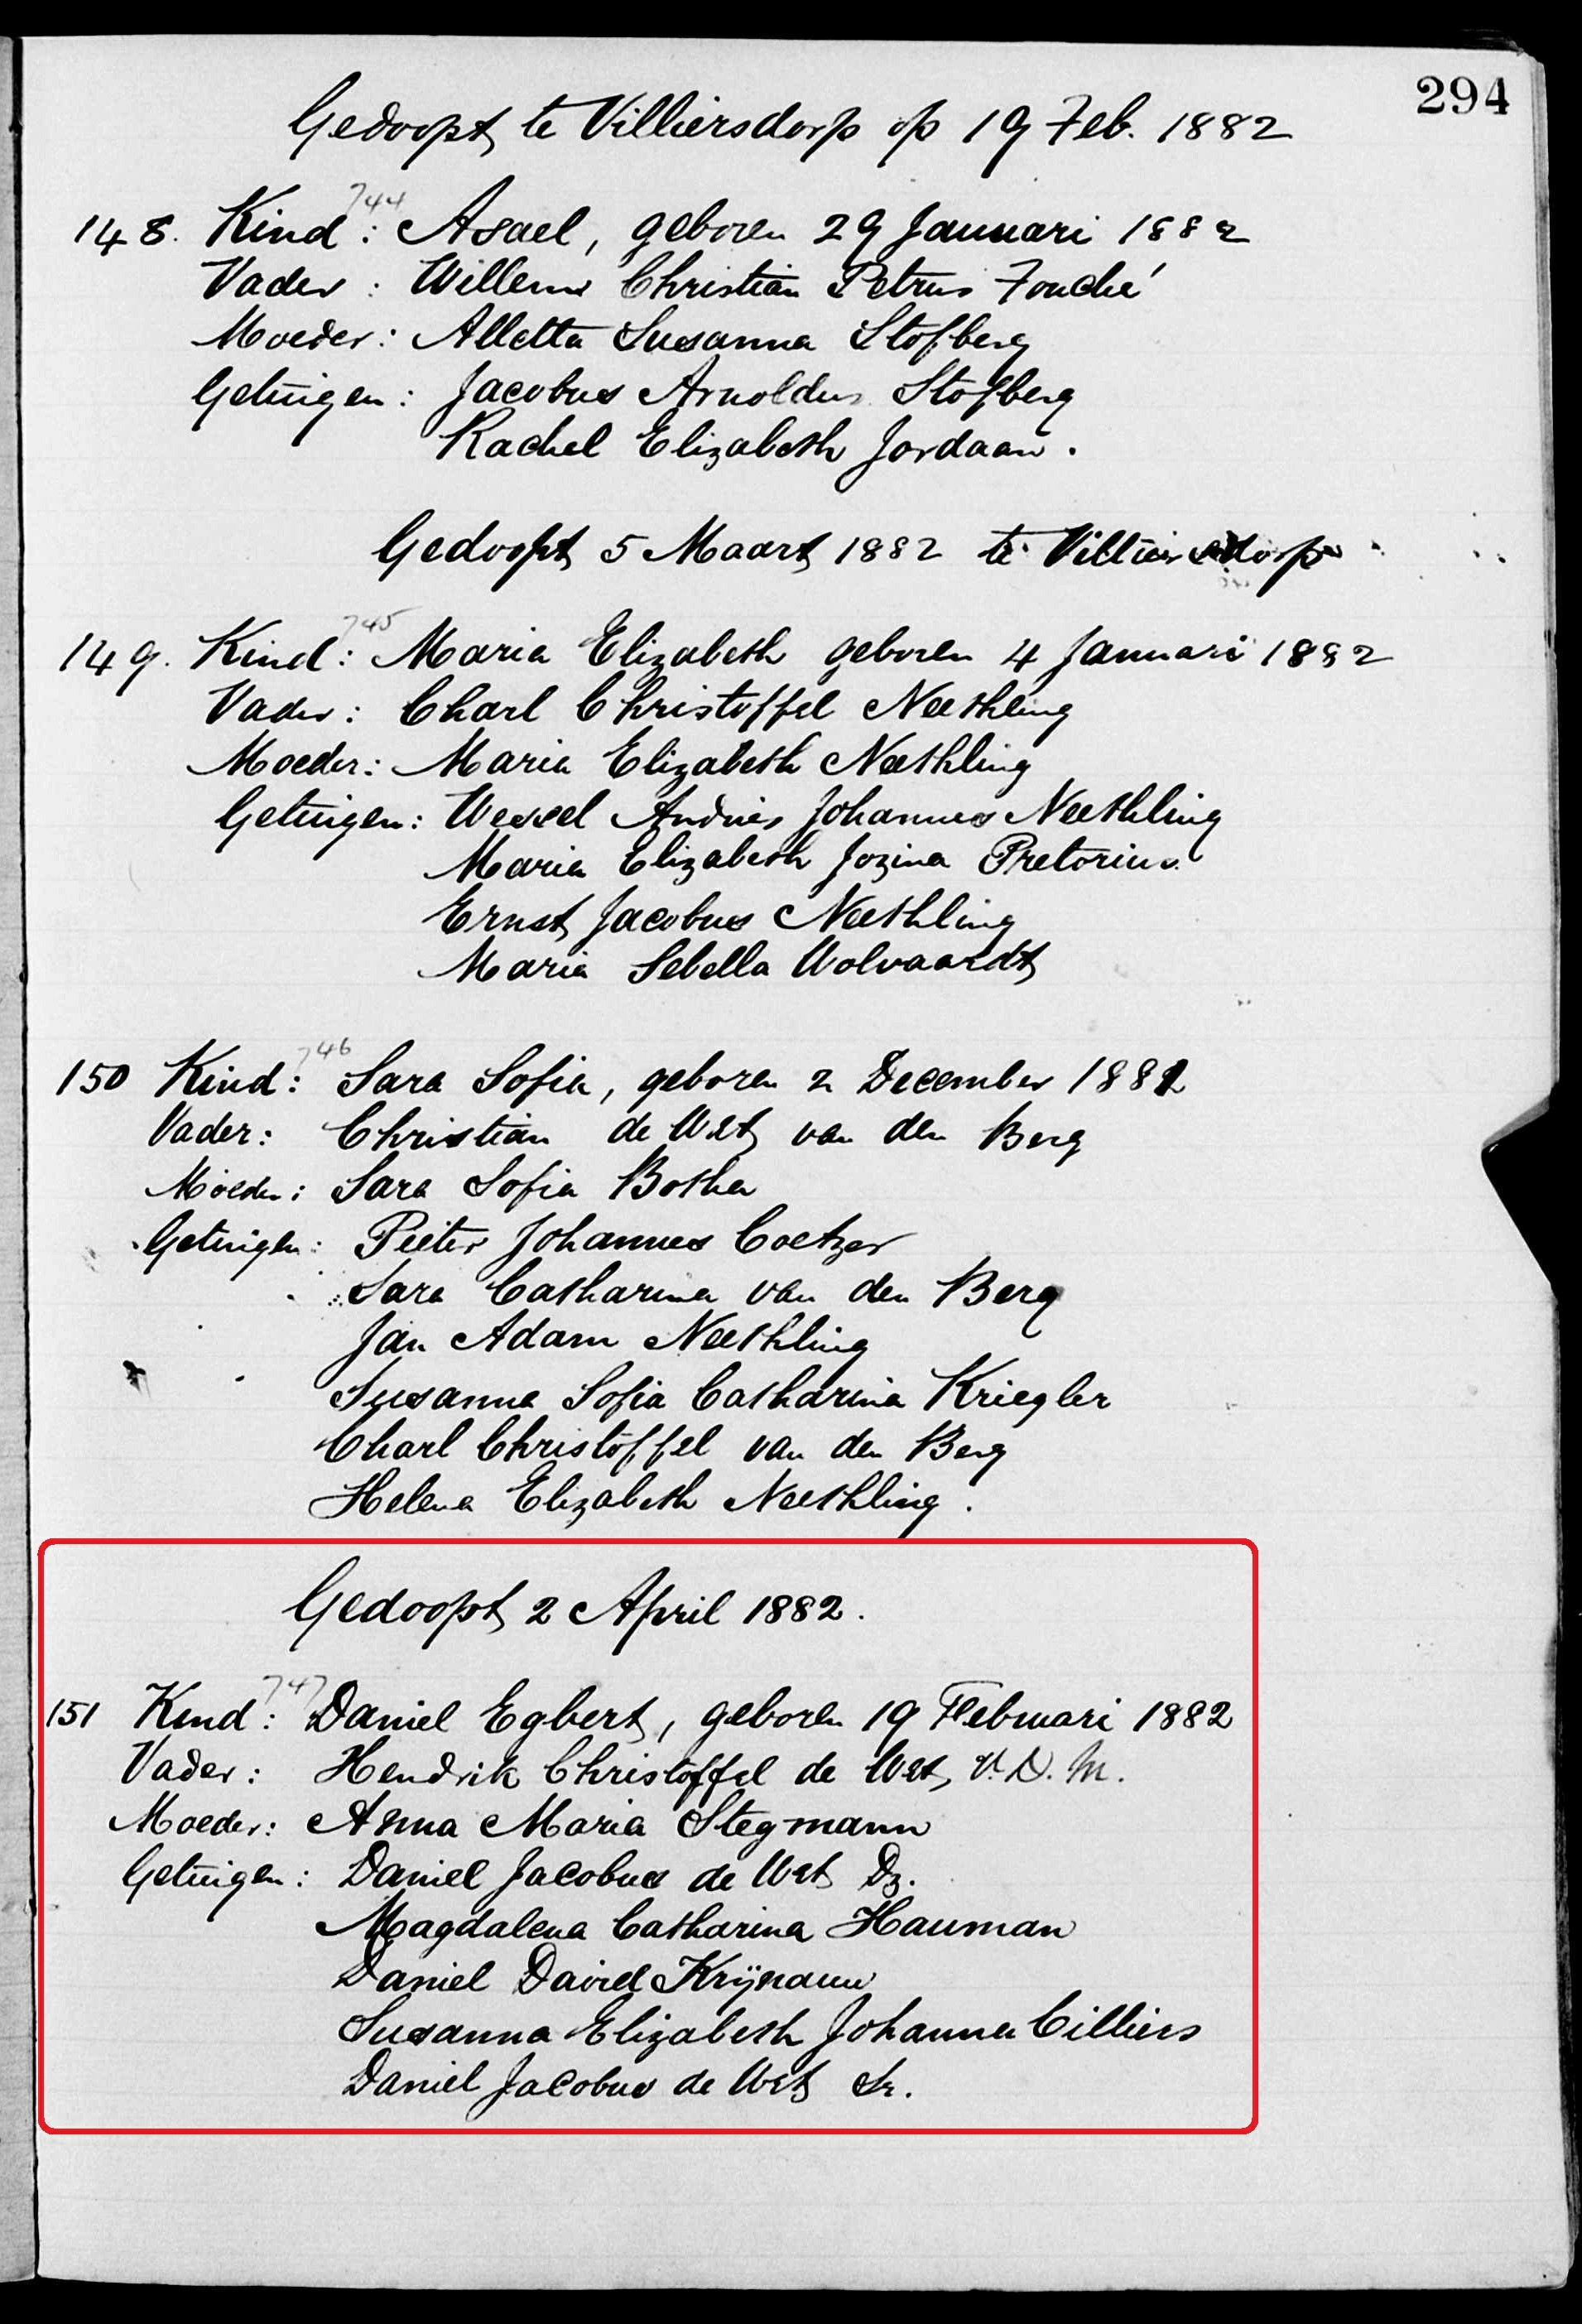 294
Gedoopt te Villiersdorp op 19 Feb. 1882
744
148. Kind: Asael, geboren 29 Januari 1882
Vader: Willem Christian Petrus Fouché
Moeder: Alletta Susanna Stofberg
Getuigen: Jacobus Arnoldus Stofberg
Rachel Elizabeth Jordaan.
Gedoopt 5 Maart 1882 te Villiersdorp
745
149. Kind: Maria Elizabeth geboren 4 Januari 1882
Vader: Charl Christoffel Neethling
Moeder: Maria Elizabeth Neethling
Getuigen: Wessel Andries Johannes Neethling
Maria Elizabeth Jozina Pretorius
Ernst Jacobus Neethling
Maria Sebella Wolvaardt
746
150 Kind: Sara Sofia, geboren 2 December 1881
Vader: Christian de Wet van den Berg
Moeder: Sara Sofia Botha
Getuigen: Pieter Johannes Coetzer
Sara Catharina van den Berg
Jan Adam Neethling
Susanna Sofia Catharina Kriegler
Charl Christoffel van den Berg
Helena Elizabeth Neethling.
Gedoopt 2 April 1882.
747
151 Kind: Daniel Egbert, geboren 19 Februari 1882
Vader: Hendrik Christoffel de Wet, V.D.M.
Moeder: Anna Maria Stegmann
Getuigen: Daniel Jacobus de Wet Dz.
Magdalena Catharina Hauman
Daniel David Krijnauw
Susanna Elizabeth Johanna Cilliers
Daniel Jacobus de Wet Sr.